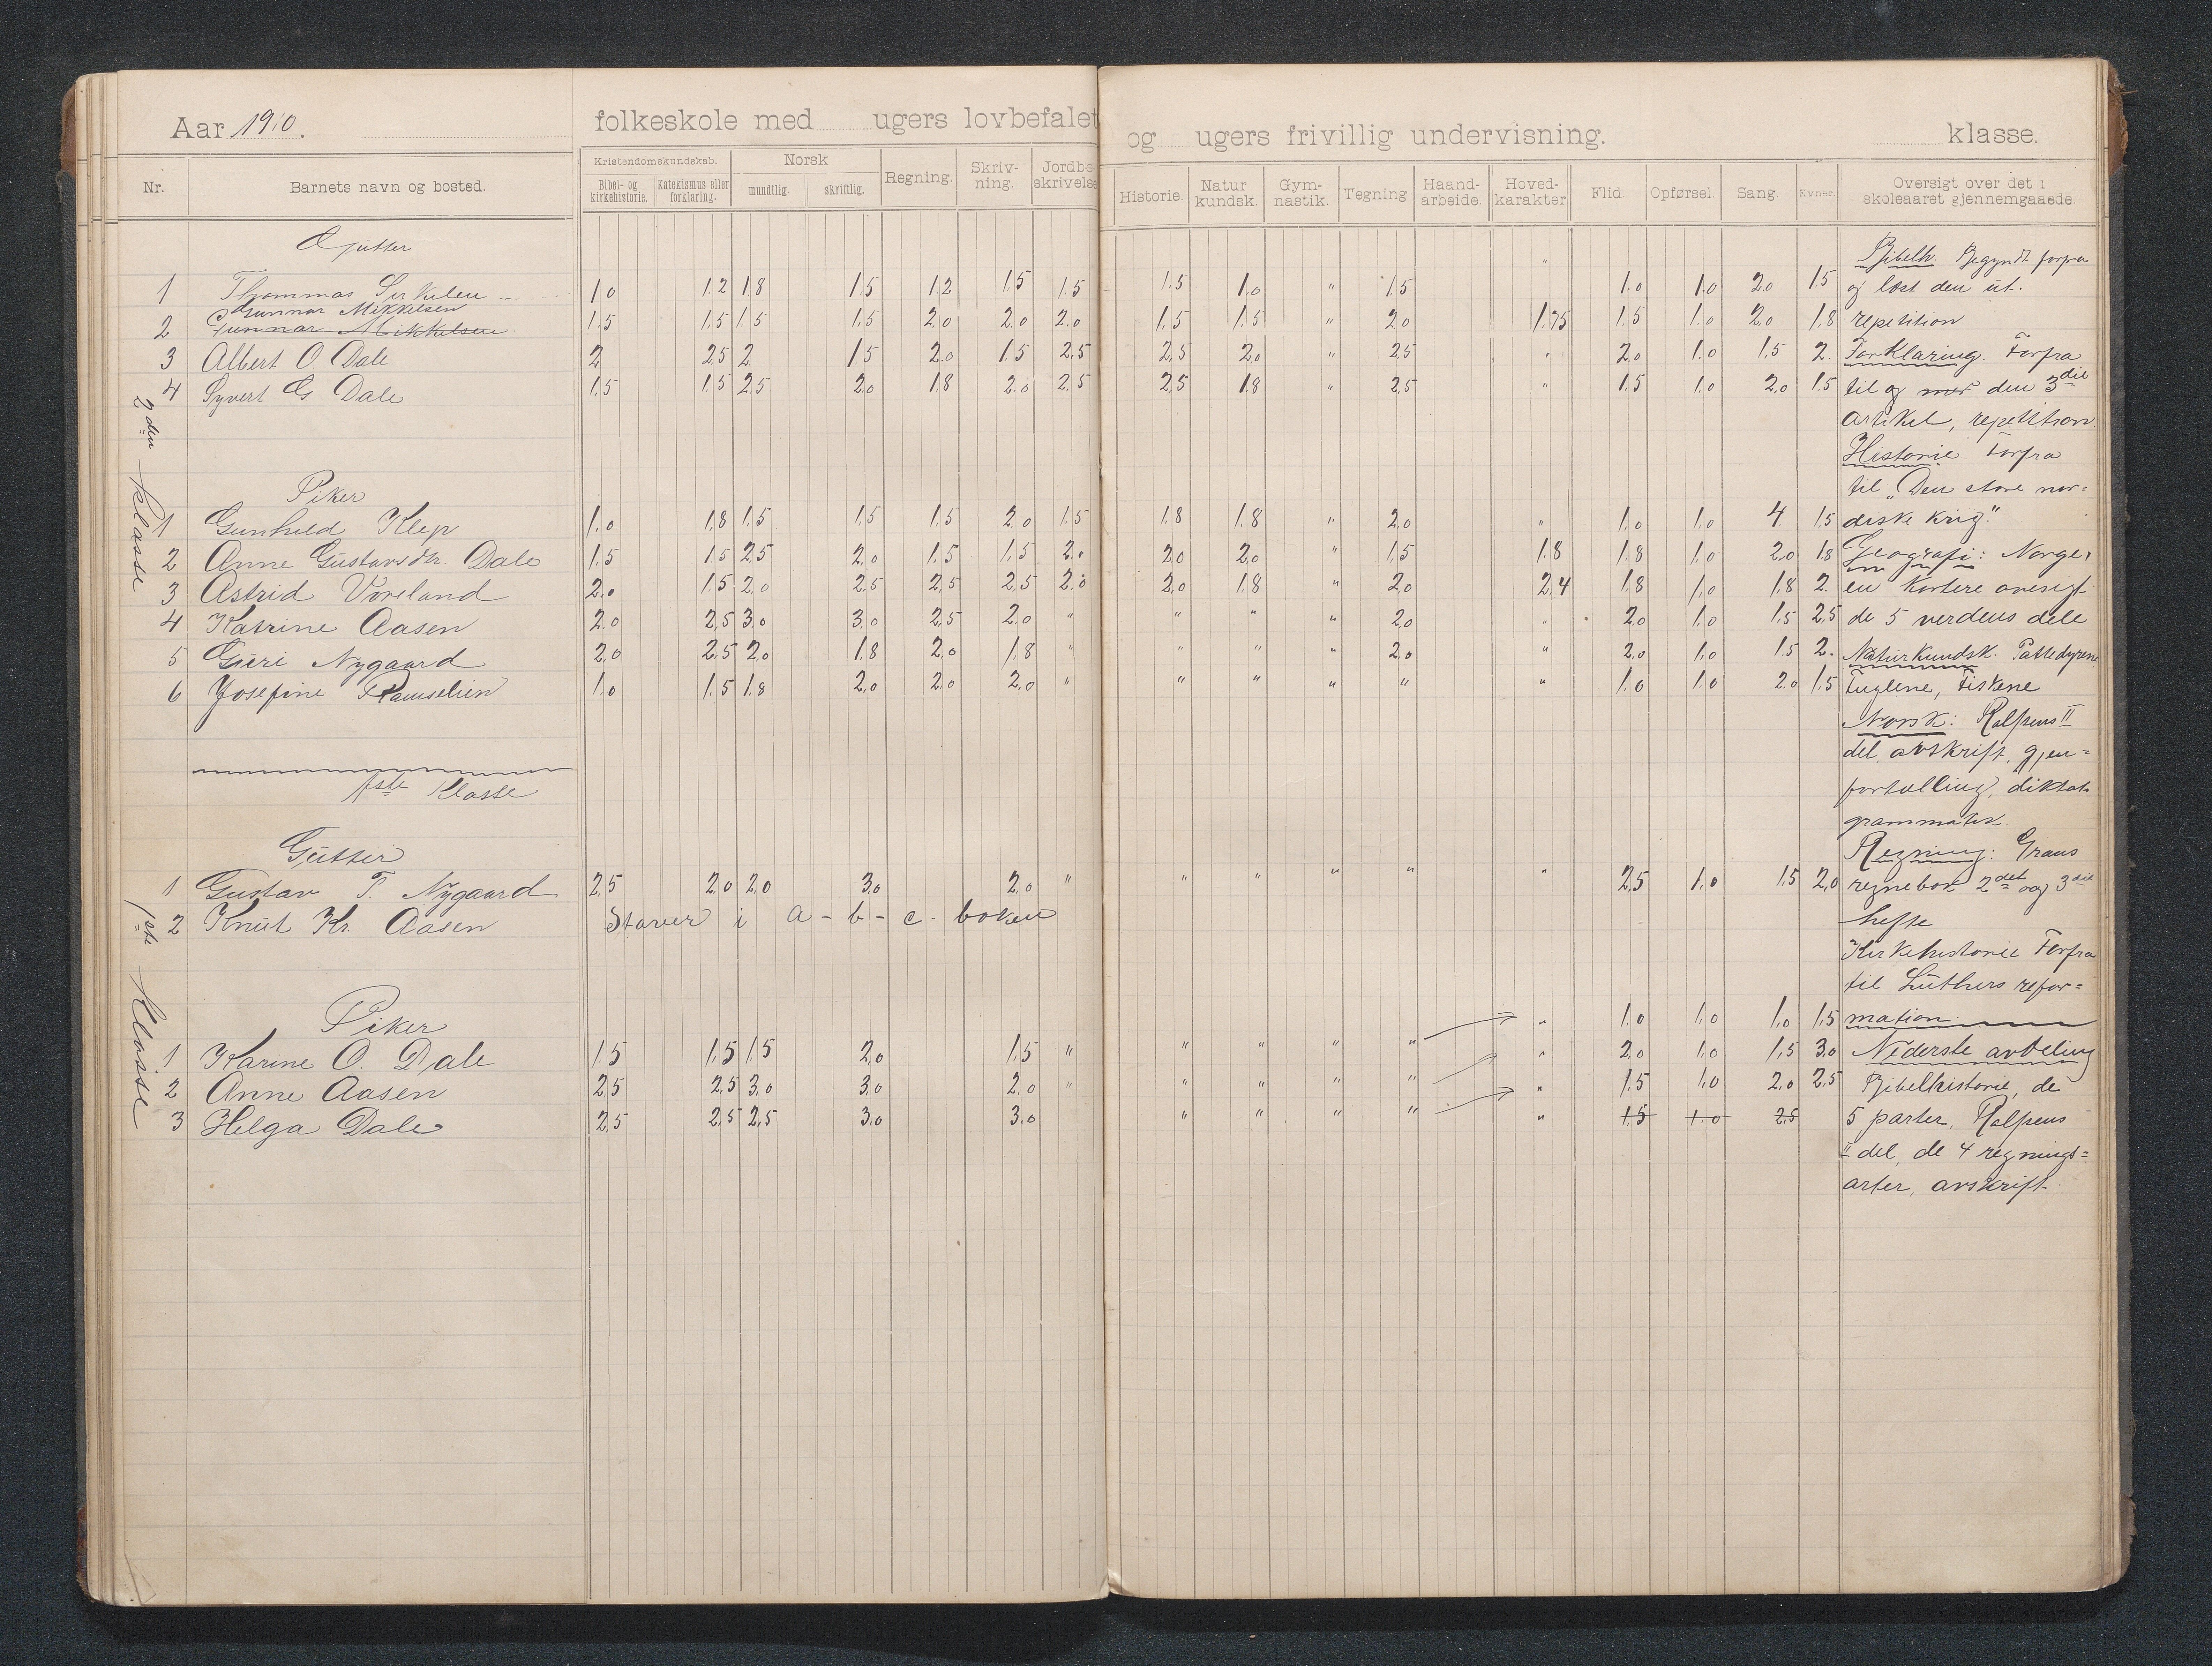 Aar 1910.
folkeskole med ugers lovbefalet
og ugers frivillig undervisning. klasse.
Nr. Barnets navn og bosted.
Kristendomskundskab. Norsk Regning. Skriv-ning. Jordbe-skrivelse
Bibel- og kirkehistorie. Katekismus eller forklaring. mundtlig. skriftlig.
Historie. Natur kundsk. Gym-nastik. Tegning Haand-arbeide. Hoved-karakter Flid. Opførsel. Sang. Evner Oversigt over det i skoleaaret gjennemgaaede.
2den klasse
Gutter
1 Thommas 1.0 1.2 1.8 1.5 1.2 1.5 1.5 1.5 1.0 " 1.5 " 1.0 1.0 2.0 1.5
Gunnar Mikkelsen
2 Gunnar Mikkelsen 1.5 1.5 1.5 1.5 2.0 2.0 2.0 1.5 1.5 " 2.0 1.75 1.5 1.0 2.0 1.8
3 Albert O. Dale 2 2.5 2 1.5 2.0 1.5 2.5 2.5 2.0 " 2.5 " 2.0 1.0 1.5 2.
4 Syvert G Dale 1.5 1.5 2.5 2.0 1.8 2.0 2.5 2.5 1.8 " 2.5 " 1.5 1.0 2.0 1.5
Piker
1 Gunhild Klep 1.0 1.8 1.5 1.5 1.5 2.0 1.5 1.8 1.8 " 2.0 " 1.0 1.0 4. 1.5
2 Anne Gustavsdtr. Dale 1.5 1.5 2.5 2.0 1.5 1.5 2.0 2.0 2.0 " 1.5 1.8 1.8 1.0 2.0 1.8
3 Astrid Voreland 2.0 1.5 2.0 2.5 2.5 2.5 2.0 2.0 1.8 " 2.0 2.4 1.8 1.0 1.8 2.
4 Katrine Aasen 2.0 2.5 3.0 3.0 2.5 2.0 " " " " 2.0 " 2.0 1.0 1.5 2.5
5 Guri Nygaard 2.0 2.5 2.0 1.8 2.0 1.8 " " " " 2.0 " 2.0 1.0 1.5 2.
6 Josefine 1.0 1.5 1.8 2.0 2.0 2.0 " " " " " " 1.0 1.0 2.0 1.5
1ste klasse
1ste klasse
Gutter
1 Gustav T. Nygaard 2.5 2.0 2.0 3.0 2.0 " " " " " " 2.5 1.0 1.5 2.0
2 Knut Kr. Aasen Staver i a - b - c - boken
Piker
1 Karine O. Dale 1.5 1.5 1.5 2.0 1.5 " " " " " " 1.0 1.0 1.0 1.5
2 Anne Aasen 2.5 2.5 3.0 3.0 2.0 " " " " " " 2.0 1.0 1.5 3.0
3 Helga Dale 2.5 2.5 2.5 3.0 3.0 " " " " " 1.5 1.0 2.0 2.5
" 1.5 1.0 2.5
Bibelh. Begyndt forfra
og læst den ut.
repetition
Forklaring. Forfra
til og med den 3die
artikel, repetition.
Historie. Forfra
til "Den store nor=
diske krig."
Geografi: Norge,
en kortere oversigt
de 5 verdens dele
Naturkundsk. Pattedyrene
Fuglene, Fiskene
Norsk: Rolfsens II
del avskrift, gjen=
fortælling, diktat
grammatik.
Regning:
regnebok 2det og 3die
hefte
Kirkehistorie Forfra
til Luthers refor=
mation.
Nederste avdeling
Bibelhistorie, de
5 parter, Rolfsens
II del, de 4 regnings=
arter, avskrift.